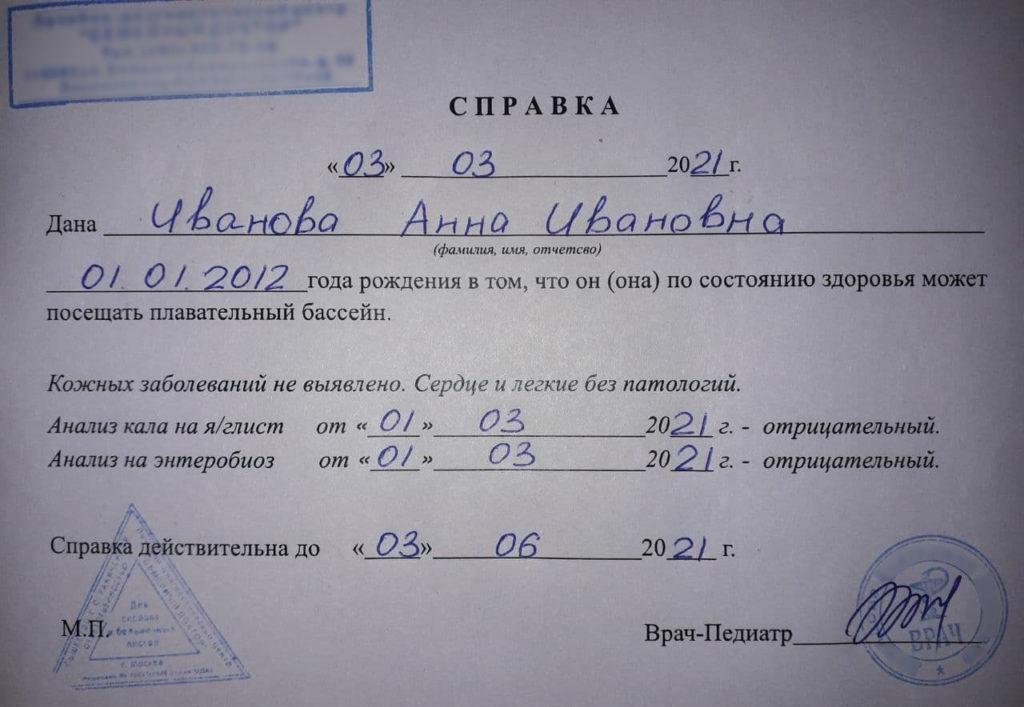 СПРАВКА
«03» 03 2021 г.
Дана Иванова Анна Ивановна
(фамилия, имя, отчетсво)
01.01.2012 года рождения в том, что он (она) по состоянию здоровья может
посещать плавательный бассейн.
Кожных заболеваний не выявлено. Сердце и легкие без патологий.
Анализ кала на я/глист от «01» 03 2021 г. - отрицательный.
Анализ на энтеробиоз от «01» 03 2021 г. - отрицательный.
Справка действительна до «03» 06 2021 г.
Для
справок
и больничных
листов
г. Москва
М.П.
Врач-Педиатр
ВРАЧ